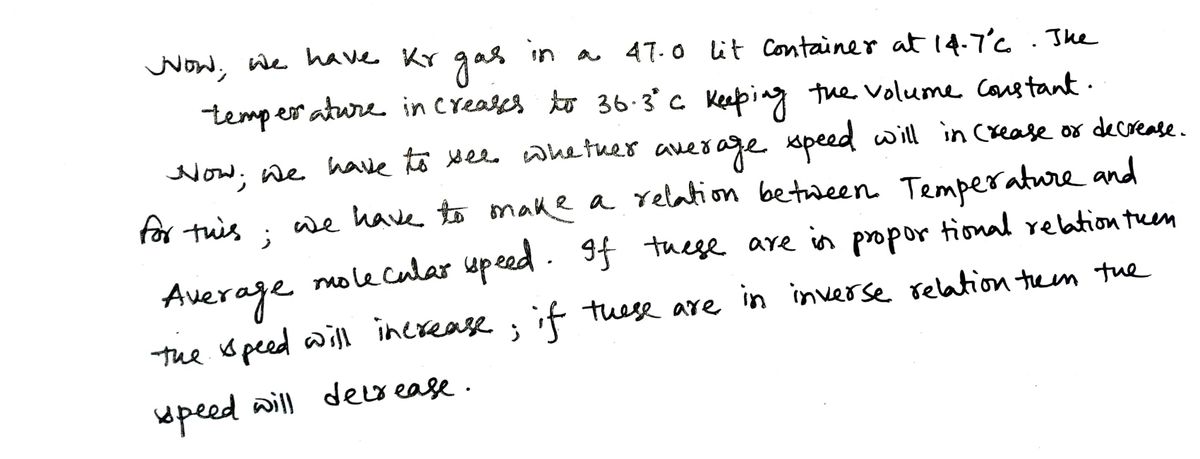 Now; we have Kr gas in a 47.0 lit Container at 14.7°C . The
temperature increases to 36.3°C Keeping the Volume Constant .
Now; we have to see whether average speed will increase or decrease.
for this ; we have to make a relation between Temperature and
Average molecular speed . If these are in proportional relation then
the speed will increase ; if these are in inverse relation then the
speed will decrease .